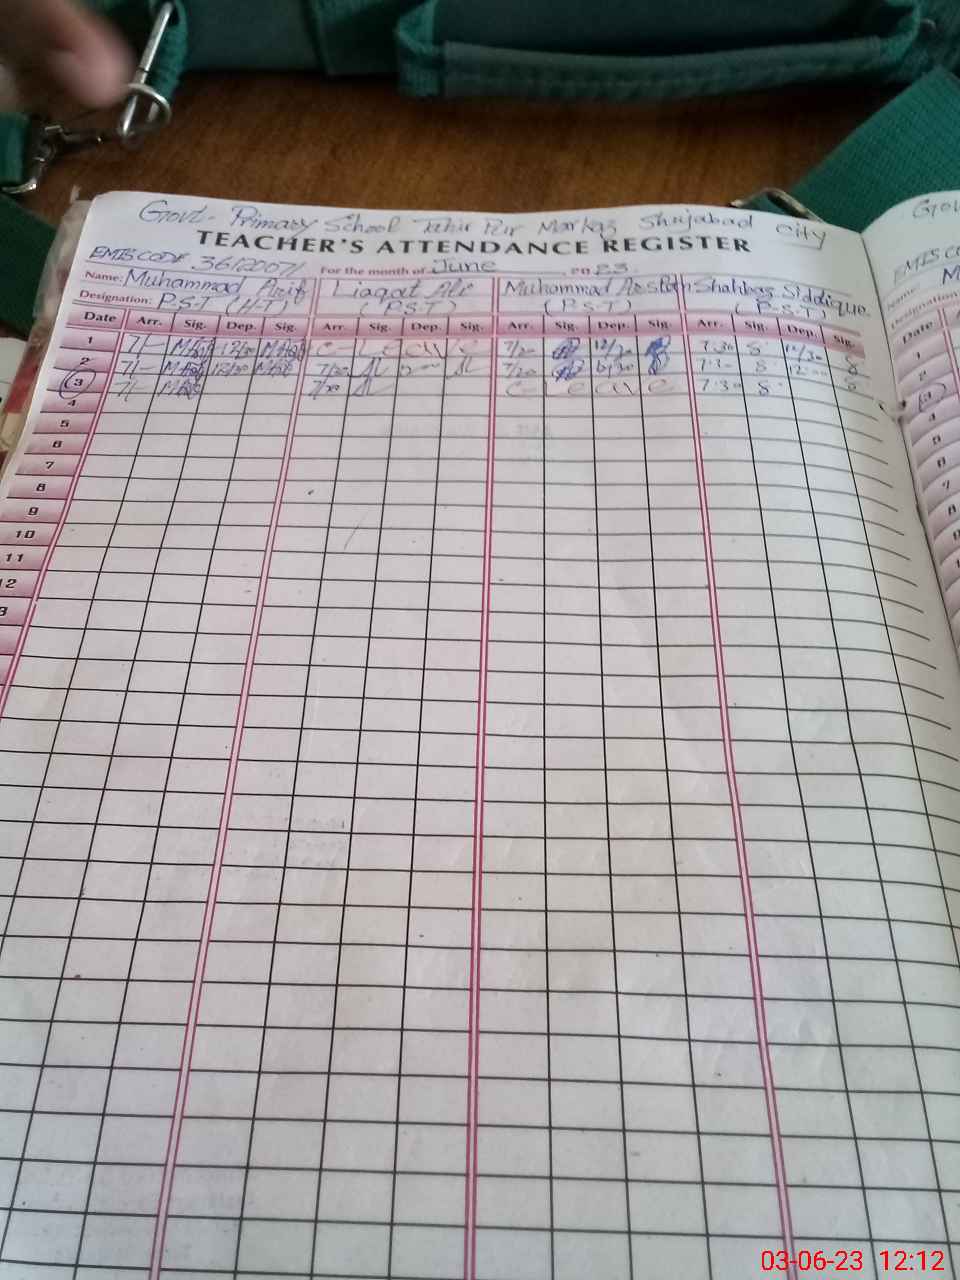 Govt- Primary School Tahir Pur Markaz Shujabad City
TEACHER'S ATTENDANCE REGISTER
EMIS CODE 36120071 For the month of June 2023.
Name: Muhammad Arif Liaqat Ali Muhammad Shahbaz Siddique
Designation: P.S.T (H-T) (P.S.T) (P.S.T) (P-S-T)
Date Arr. Sig. Dep. Sig. Arr. Sig. Dep. Sig. Arr. Sig. Dep. Sig. Arr. Sig. Dep. Sig.
1 7/- 12/30 Leave 7/20 12/30 7.30 12/30
2 7/- 12/30 7/20 7/20 7.30 12:00
3 7/- 7/20 Leave 7.30
4
5
6
7
8
9
10
11
12
Gov
EMIS CO
Name: M
Designation
Date
1
2
3
4
5
6
7
8
03-06-23 12:12